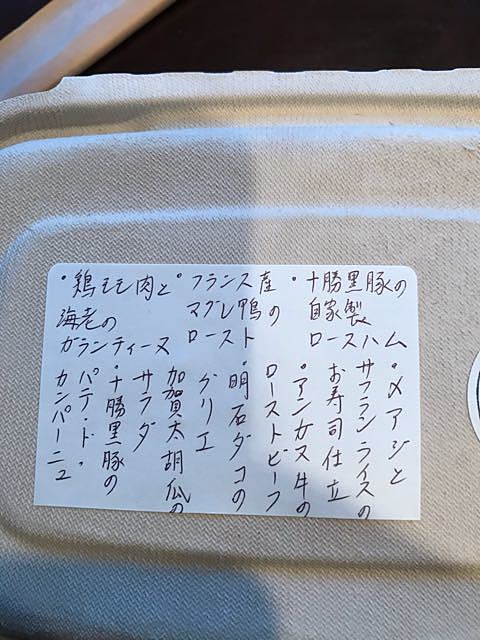 ・鶏モモ肉と
海老の
ガランティーヌ
・フランス産
マグレ鴨の
ロースト
・十勝黒豚の
自家製
ロースハム
・〆アジと
サフランライスの
お寿司仕立
・アンガス牛の
ローストビーフ
・明石ダコの
グリエ
加賀太胡瓜の
サラダ
・十勝黒豚の
パテ・ド・
カンパーニュ